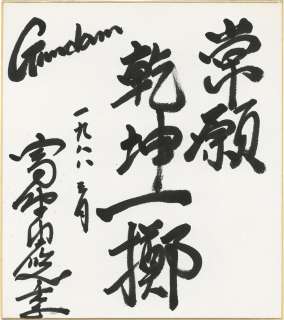 常願
乾坤一擲
Gundam
一九八八 月
富野由悠季